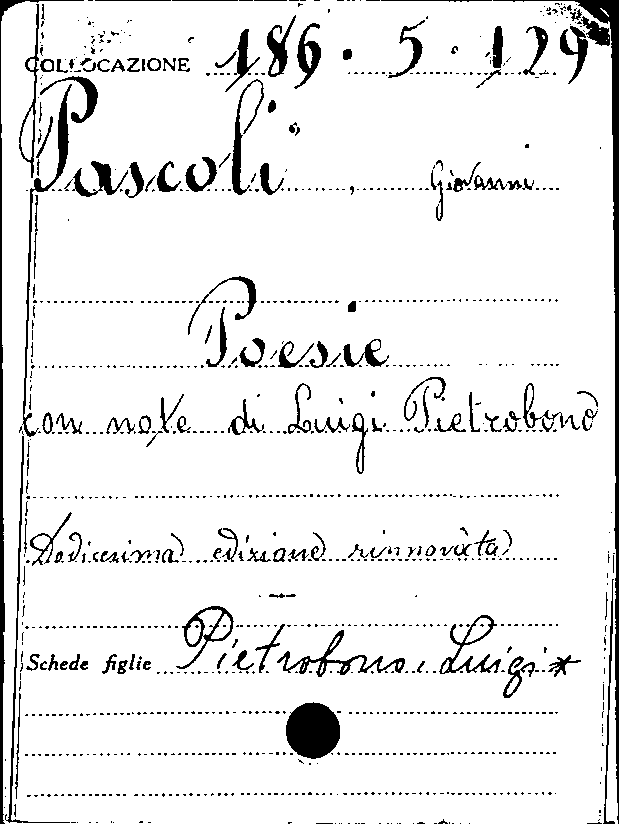 COLLOCAZIONE 186. 5. 129
Pascoli, Giovanni
Poesie
con note di Luigi Pietrobono
Dodicesima edizione rinnovata
Schede figlie Pietrobono, Luigi*